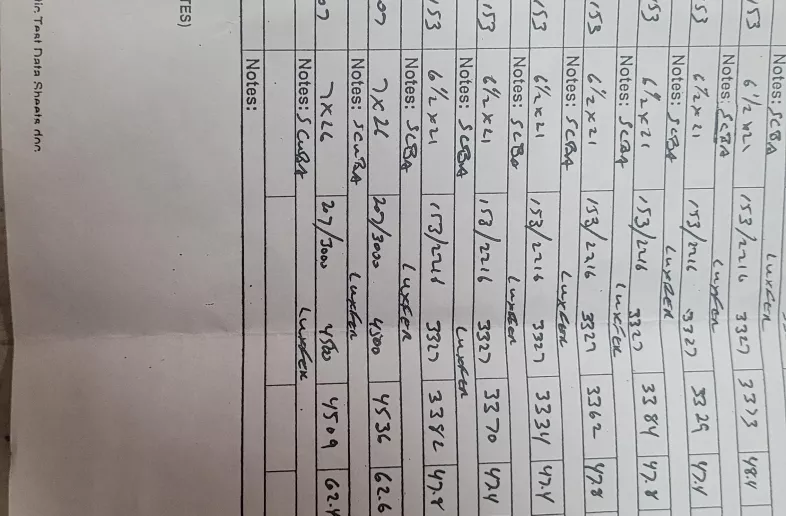 Notes: SCBA LUXFER
153 6 1/2 x 21 153/2216 3327 3373 48.4
Notes: SCBA LUXFER
53 6 1/2 x 21 153/2216 3327 3329 47.4
Notes: SCBA LUXFER
53 6 1/2 x 21 153/2216 3327 3384 47.8
Notes: SCBA LUXFER
153 6 1/2 x 21 153/2216 3327 3362 47.8
Notes: SCBA LUXFER
153 6 1/2 x 21 153/2216 3327 3334 47.4
Notes: SCBA LUXFER
153 6 1/2 x 21 153/2216 3327 3370 47.4
Notes: SCBA LUXFER
153 6 1/2 x 21 153/2216 3327 3382 47.8
Notes: SCBA LUXFER
07 7 x 26 207/3000 4500 4536 62.6
Notes: SCUBA LUXFER
07 7 x 26 207/3000 4500 4509 62.4
Notes: SCUBA LUXFER
Notes:
TES)
Test Data Sheets